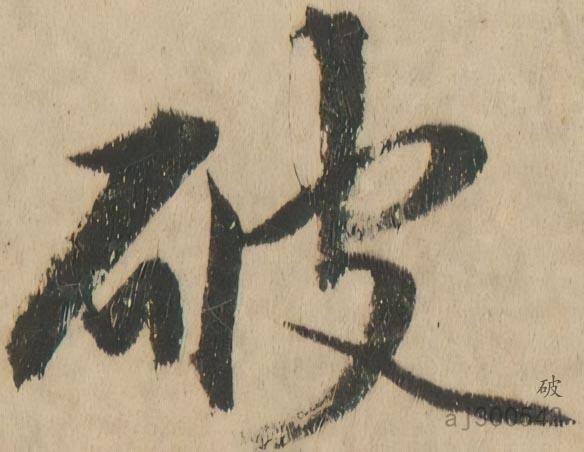 破
破
aj300542